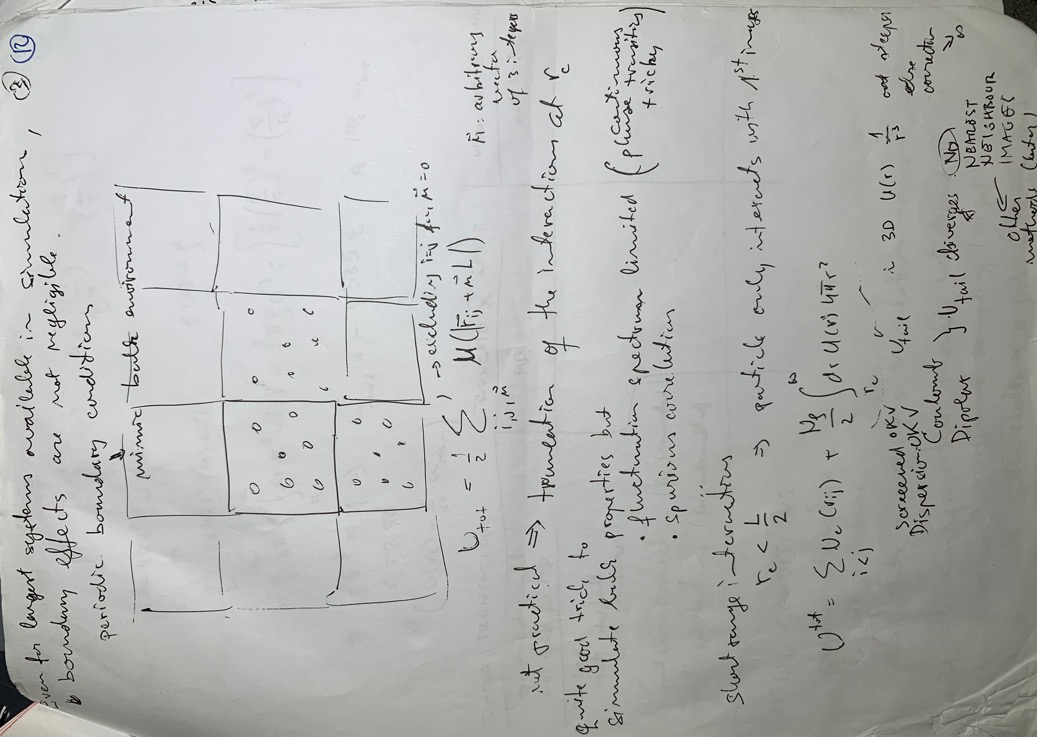 Even for largest systems available in simulation,
boundary effects are not negligible.
periodic boundary conditions
③ ⑫
mimic bulk environment
U_tot = 1/2 Σ'_{i,j,n⃗} U(|r⃗_ij + n⃗L|)
→ excluding i=j for n⃗=0
n⃗: arbitrary
vector
of 3 integers
not practical ⇒ truncation of the interactions at r_c
Quite good trick to
simulate bulk properties but
• fluctuation spectrum limited (continuous
phase transitions
tricky)
• spurious correlations
Short range interactions
r_c < L/2 ⇒ particle only interacts with 1st images
U^tot = Σ_{i<j} U_c(r_ij) + Nρ/2 ∫_{r_c}^∞ dr U(r) 4πr²
U_tail in 3D U(r) 1/r³ and steeper
else
correction
∞
Screened OK√
Dispersion OK√
Coulomb
Dipolar } U_tail diverges
NO
NEAREST
NEIGHBOUR
IMAGES
other
methods (later)